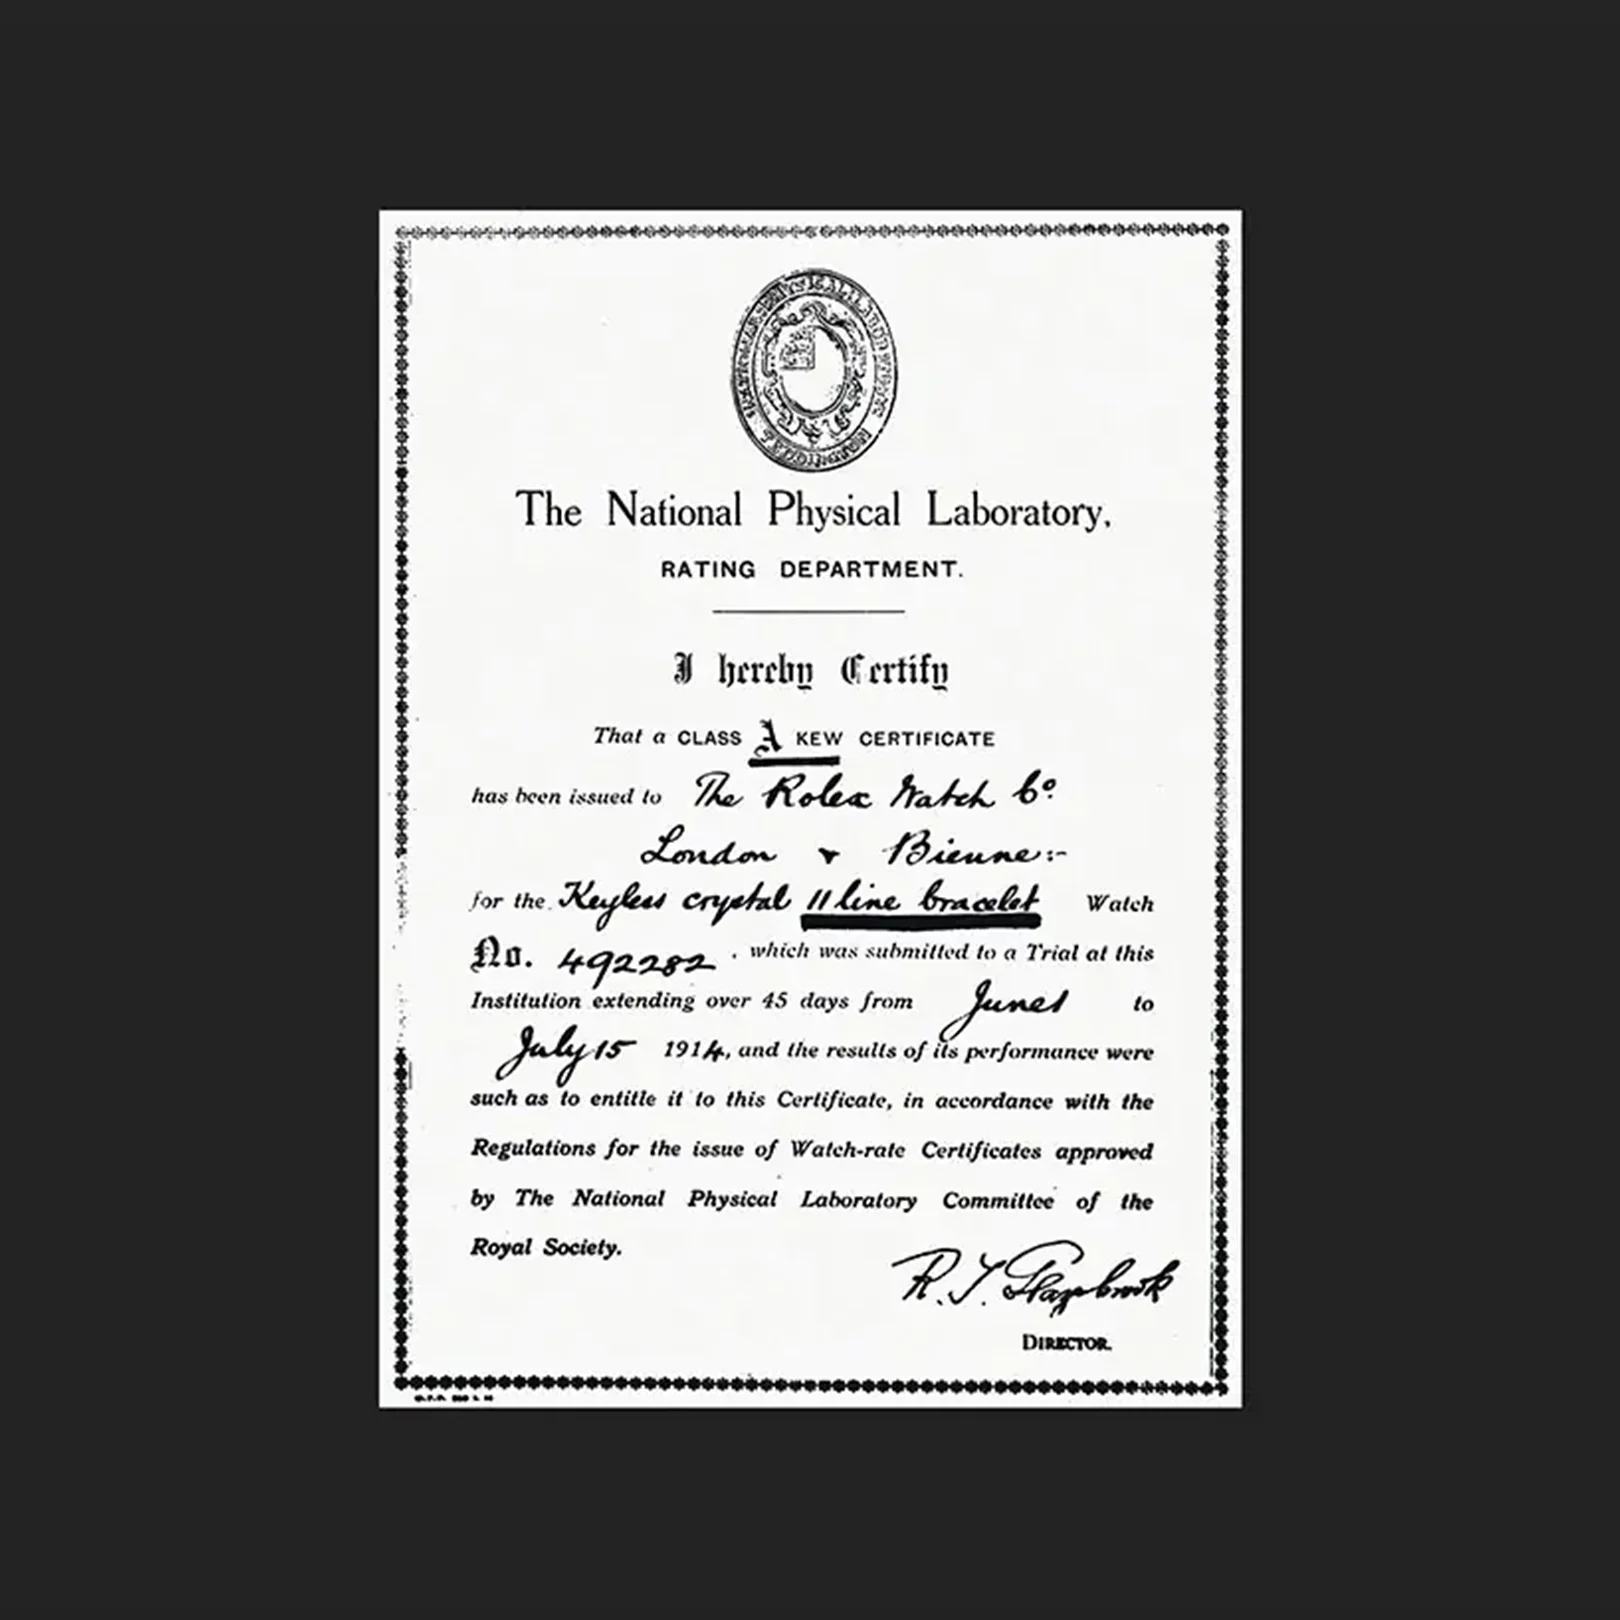 The National Physical Laboratory,
RATING DEPARTMENT.
I hereby Certify
That a CLASS A KEW CERTIFICATE
has been issued to The Rolex Watch Co.
London & Bienne:-
for the Keyless crystal 11 line bracelet Watch
No. 492282, which was submitted to a Trial at this
Institution extending over 45 days from June 1 to
July 15 1914, and the results of its performance were
such as to entitle it to this Certificate, in accordance with the
Regulations for the issue of Watch-rate Certificates approved
by The National Physical Laboratory Committee of the
Royal Society.
R. T. Glazebrook
DIRECTOR.